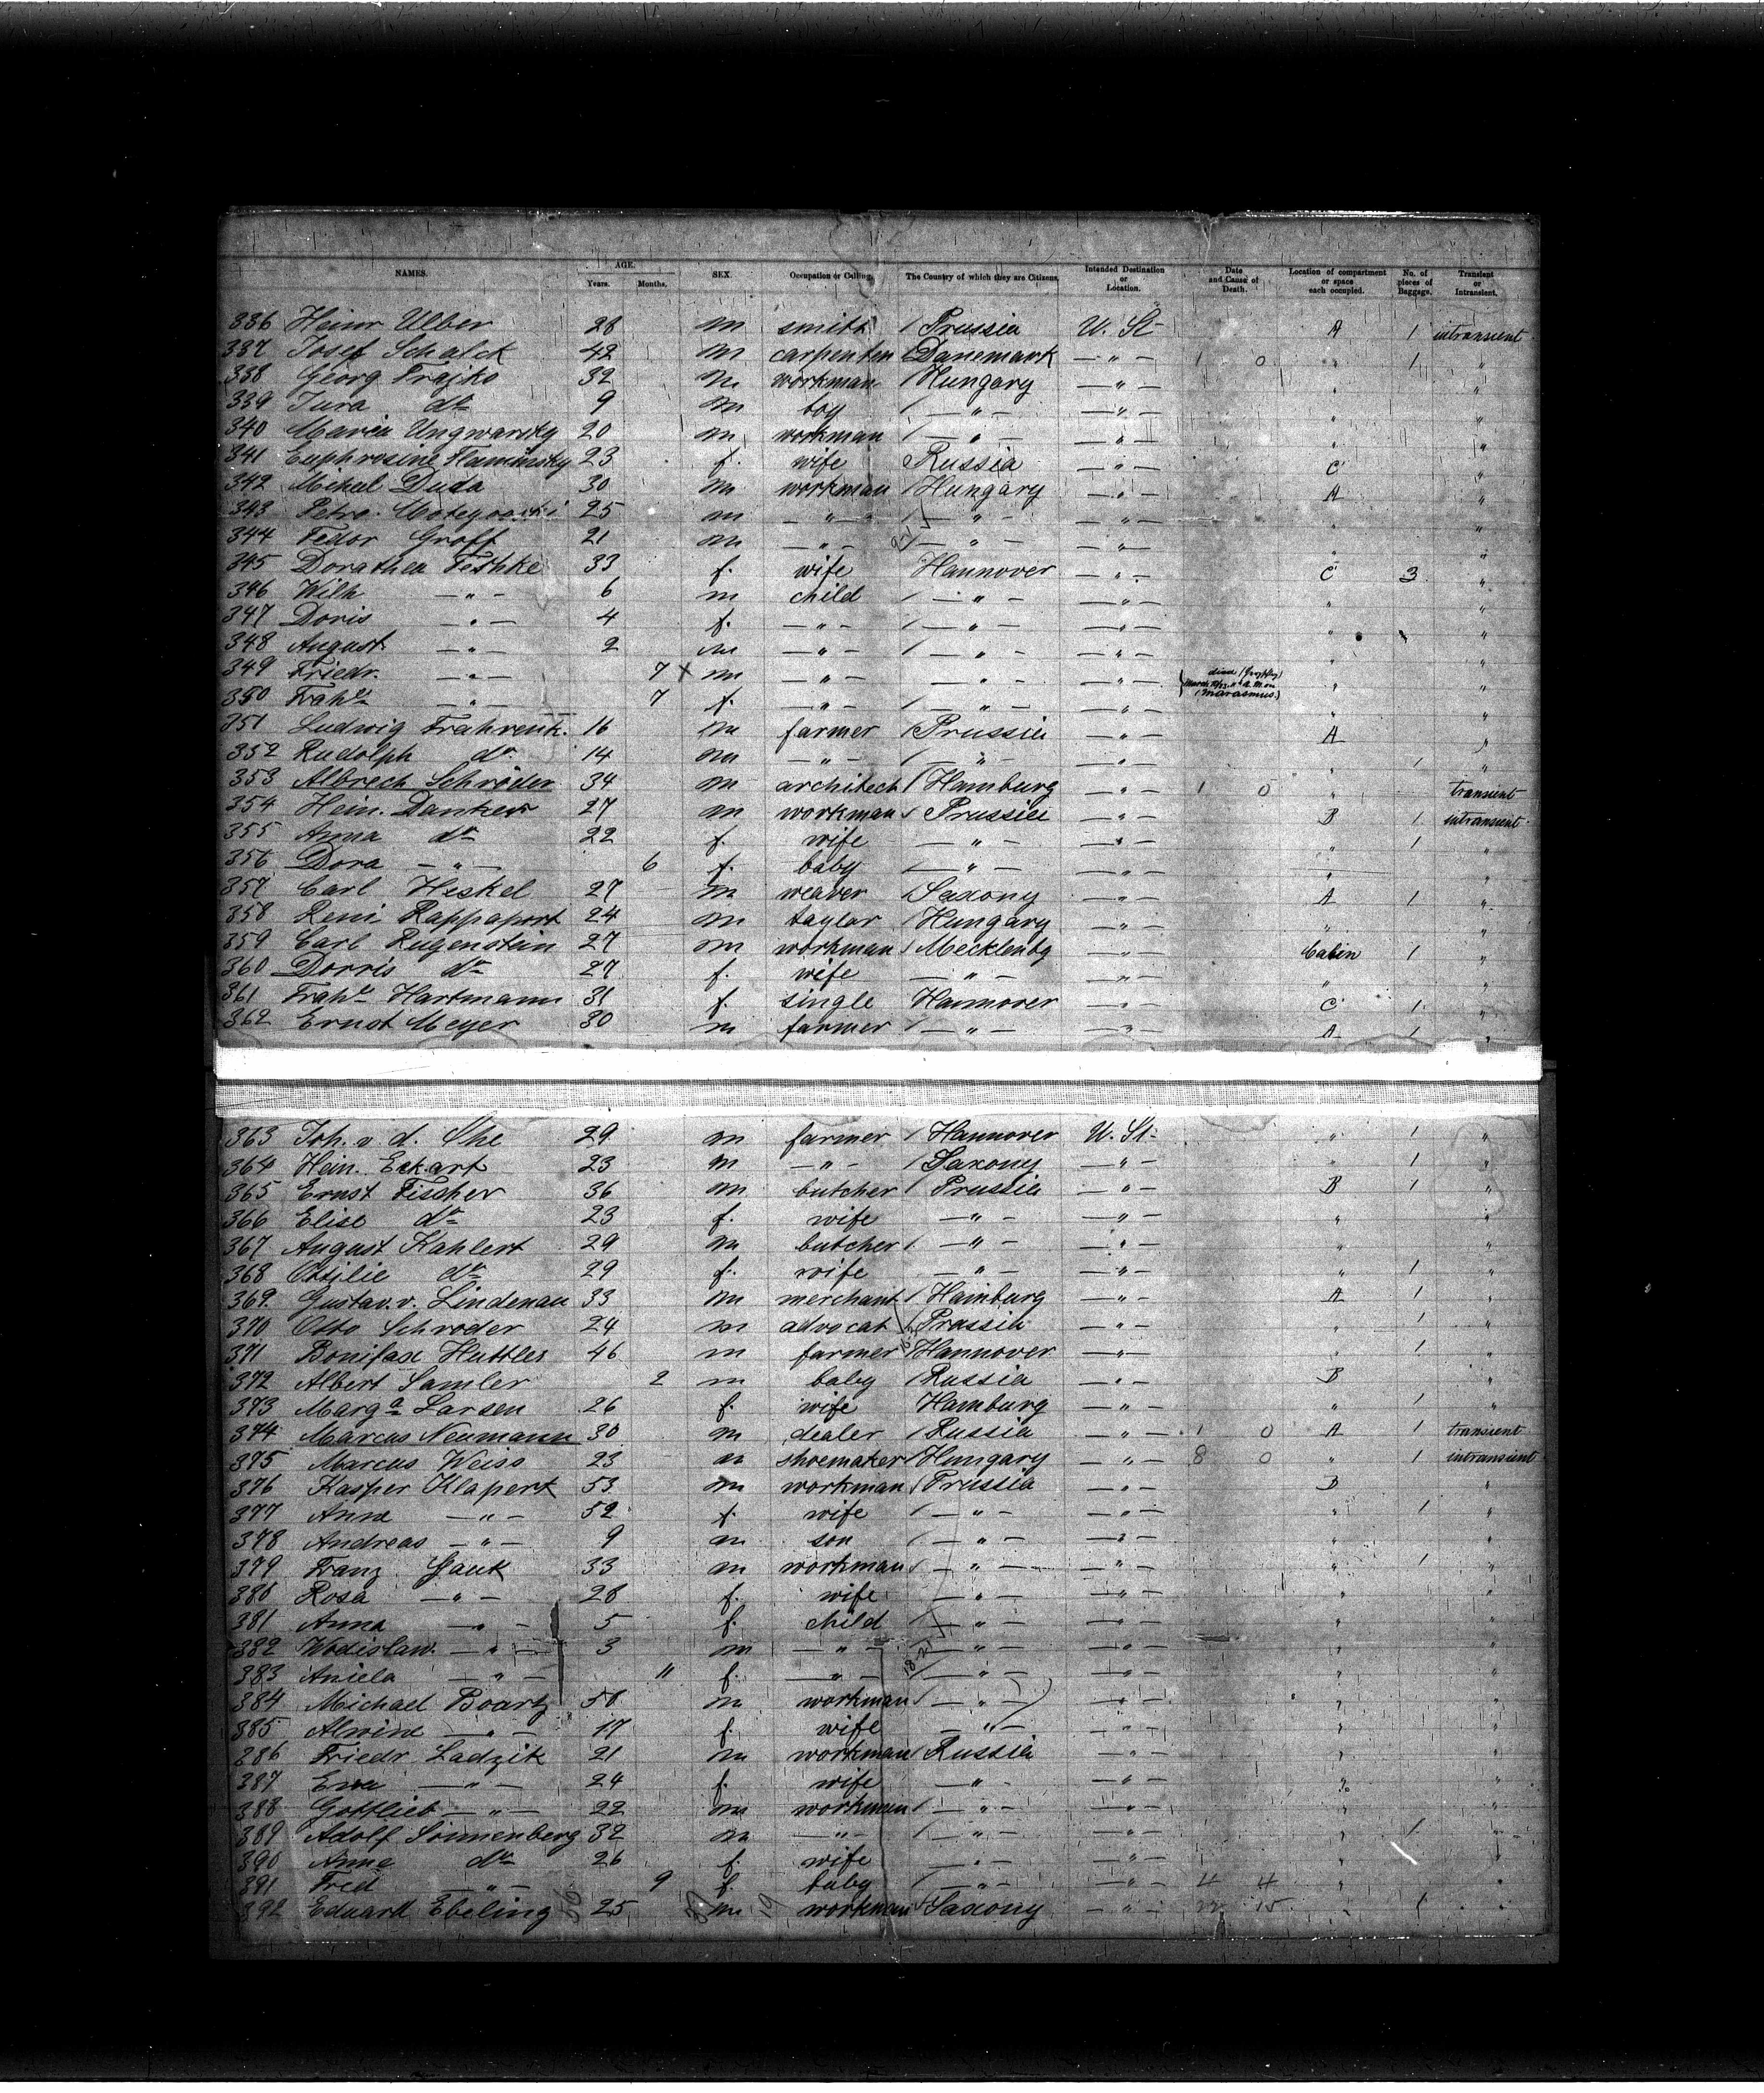 NAMES. AGE. Years. Months. SEX. Occupation or Calling. The Country of which they are Citizens. Intended Destination or Location. Date and Cause of Death. Location of compartment or space each occupied. No. of pieces of Baggage. Transient or Intransient.
336 Heinr Ulber 28 m smith / Prussia U. St A 1 intransient
337 Josef Schalck 42 m carpenter / Danemark — " — 1 0 " 1 "
338 Georg Trajko 32 m workman / Hungary — " — " "
339 Jura do 9 m boy / — " — — " — " "
340 Maria Ungwarsky 20 m workman / — " — — " — " "
341 Euphrosine 23 f. wife Russia — " — C "
342 Mihal Duda 30 m workman / Hungary — " — A "
343 Petro 25 m — " — / — " — — " — " "
344 Fedor Groff 21 m — " — / — " — — " — " "
345 Dorathea Teshke 33 f. wife Hannover — " — C 3 "
346 Wilh — " — 6 m child / — " — — " — " "
347 Doris — " — 4 f. — " — / — " — — " — " "
348 August — " — 2 m — " — / — " — — " — " "
349 Friedr. — " — 7 X m — " — — " — — " — died March A. M. on (Marasmus.) " "
350 Frahe — " — 7 f. — " — / — " — — " — " "
351 Ludwig Frahrenk. 16 m farmer / Prussia — " — A "
352 Rudolph do 14 m — " — / — " — — " — " 1 "
353 Albrech Schröder 34 m architech / Hamburg — " — 1 0 " transient
354 Hein. Danker 27 m workman / Prussia — " — B 1 intransient
355 Anna do 22 f. wife — " — — " — " 1 "
356 Dora — " — 6 f. baby / — " — — " — " "
357 Carl Heskel 27 m weaver / Saxony — " — A 1 "
358 Reni Rappaport 24 m taylor / Hungary — " — " "
359 Carl Rugenstein 27 m workman / Mecklenbg — " — Cabin 1 "
360 Dorris do 27 f. wife — " — — " — " "
361 Frahe Hartmann 31 f. single Hannover — " — C 1 "
362 Ernst Meyer 30 m farmer / — " — — " — A 1 "
363 Joh. v. d. Ohe 29 m farmer / Hannover U. St. " 1 "
364 Hein. Eckart 23 m — " — / Saxony — " — " 1 "
365 Ernst Fischer 36 m butcher / Prussia — " — B 1 "
366 Elise do 23 f. wife — " — — " — " "
367 August Kahlert 29 m butcher / — " — — " — " "
368 Ottilie do 29 f. wife — " — — " — " 1 "
369. Gustav. v. Lindenau 33 m merchant / Hamburg — " — A 1 "
370 Otto Schroder 24 m advocat / Prussia — " — " 1 "
371 Bonifax Huttler 46 m farmer / Hannover — " — " 1 "
372 Albert Samler 2 m baby / Russia — " — B "
373 Marga Larsen 26 f. wife Hamburg — " — " 1 "
374 Marcus Neumann 30 m dealer / Russia — " — 1 0 A 1 transient
375 Marcus Weiss 23 m shoemaker / Hungary — " — 8 0 " 1 intransient
376 Kasper Klapert 53 m workman / Prussia — " — B "
377 Anna — " — 52 f. wife / — " — — " — " 1 "
378 Andreas — " — 9 m son / — " — — " — " "
379 Franz Gauk 33 m workman / — " — — " — " 1 "
380 Rosa — " — 28 f. wife — " — — " — " "
381 Anna — " — 5 f. child / — " — — " — " "
382 Wadislaw. — " — 3 m — " — / — " — — " — " "
383 Aniela — " — 11 f. — " — / — " — — " — " "
384 Michael Boartz 58 m workman / — " — — " — " "
385 Alwine — " — 17 f. wife — " — — " — " "
286 Friedr. Ladzik 21 m workman / Russia — " — " "
387 Eva — " — 24 f. wife — " — — " — " "
388 Gottlieb — " — 22 m workman / — " — — " — " "
389 Adolf Sonnenberg 32 m — " — / — " — — " — " 1 "
390 Anne do 26 f. wife — " — — " — " "
391 Fred — " — 9 f. baby / — " — — " — 4 4 " "
392 Eduard Ebeling 25 m 19 workman / Saxony — " — 15 " 1 "